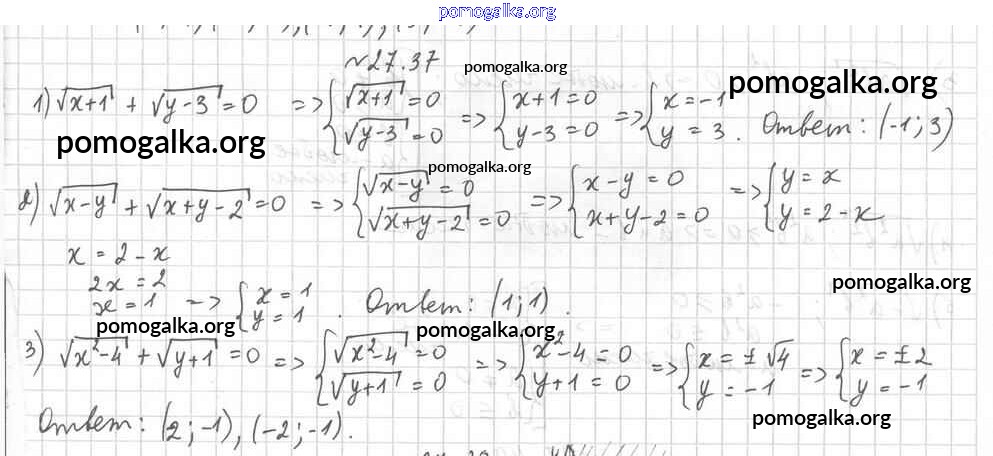 pomogalka.org
№27.37
pomogalka.org
pomogalka.org
1) √(x+1) + √(y-3) = 0 => {√(x+1) = 0, √(y-3) = 0 => {x+1=0, y-3=0 => {x=-1, y=3. Ответ: (-1; 3)
pomogalka.org
pomogalka.org
2) √(x-y) + √(x+y-2) = 0 => {√(x-y) = 0, √(x+y-2) = 0 => {x-y=0, x+y-2=0 => {y=x, y=2-x
x = 2-x
2x = 2
pomogalka.org
x = 1 => {x=1, y=1. Ответ: (1; 1).
pomogalka.org
pomogalka.org
3) √(x²-4) + √(y+1) = 0 => {√(x²-4) = 0, √(y+1) = 0 => {x²-4=0, y+1=0 => {x=±√4, y=-1 => {x=±2, y=-1
pomogalka.org
Ответ: (2; -1), (-2; -1).